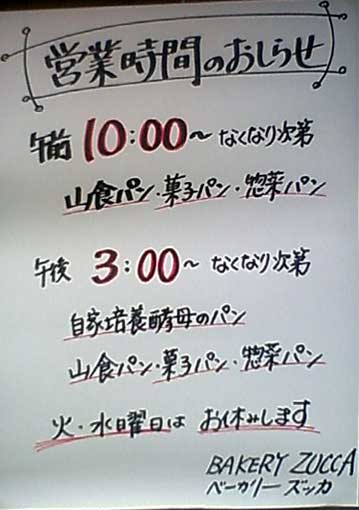 営業時間のおしらせ
午前 10:00～ なくなり次第
山食パン・菓子パン・惣菜パン
午後 3:00～ なくなり次第
自家培養酵母のパン
山食パン・菓子パン・惣菜パン
火・水曜日は お休みします
BAKERY ZUCCA
ベーカリー ズッカ